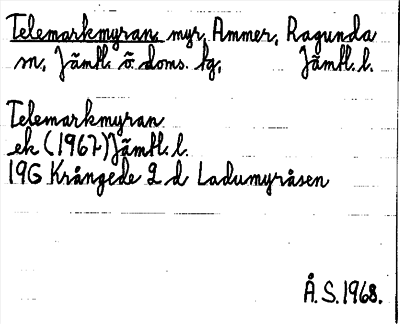 Telemarkmyran, myr, Ammer, Ragunda
sn, Jämtl. ö. doms. tg, Jämtl. l.
Telemarkmyran
ek (1967) Jämtl. l.
19G Krångede 2 d Ladumyråsen
Å. S. 1968.